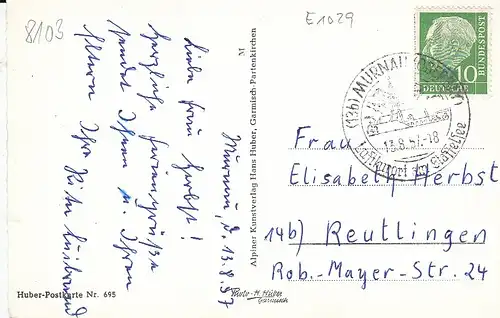 8103
E1029
Murnau, d. 13.8.57
Liebe Frau Herbst!
Herzliche Feriengrüße
sendet Ihnen u. Ihren
Eltern Ihre
M
Alpiner Kunstverlag Hans Huber, Garmisch-Partenkirchen
Huber-Postkarte Nr. 695
Photo-H. Huber
Garmisch
10
DEUTSCHE
BUNDESPOST
(13b) MURNAU
13.8.57.-18
Luftkurort am Staffelsee
Frau
Elisabeth Herbst
14b) Reutlingen
Rob.-Mayer-Str. 24